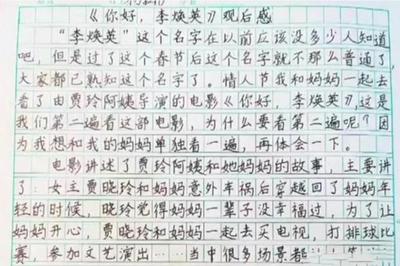 《你好,李焕英》观后感
“李焕英”这个名字在以前应该没多少人知道
吧,但是过了这个春节后这个名字就不那么普通了,
大家都已熟知这个名字了。情人节我和妈妈一起去
看了由贾玲阿姨导演的电影《你好,李焕英》这是
我们第二遍看这部电影,为什么要看第二遍呢?因
为我想和我的妈妈单独看一遍,再体会一下。
电影讲述了贾玲阿姨和她妈妈的故事,主要讲
了:女主贾晓玲和妈妈意外车祸后穿越回了妈妈年
轻的时候,晓玲觉得妈妈一辈子没幸福过,为了让
妈妈开心,贾晓玲和妈妈一起去买电视,打排球比
赛,参加文艺演出…当中很多场景都